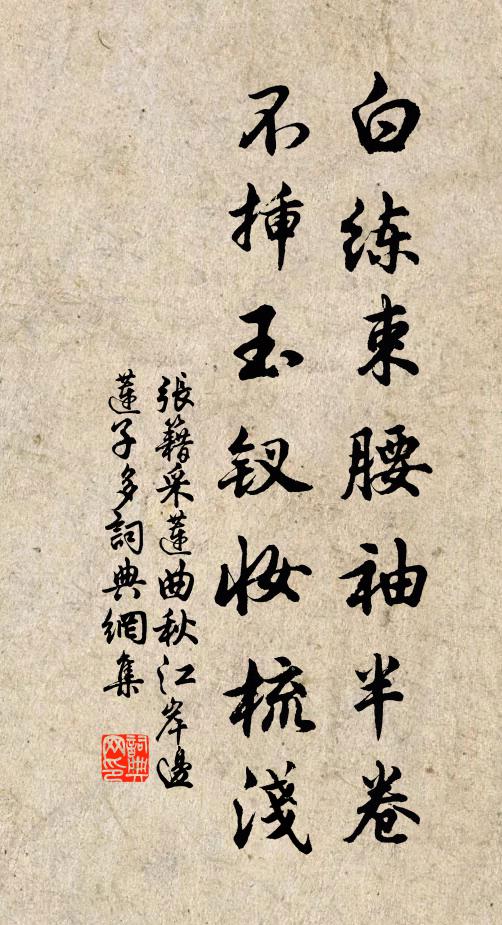 白练束腰袖半卷
不插玉钗妆梳淺
張籍采蓮曲秋江岸邊
蓮子多詞典網集
詞典
网印